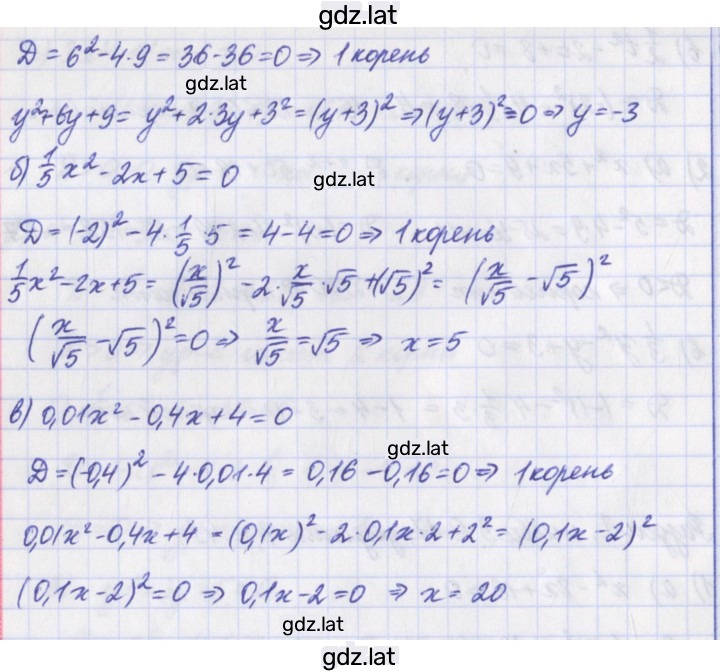 gdz.lat
Д = 6² - 4·9 = 36 - 36 = 0 ⇒ 1 корень
gdz.lat
y² + 6y + 9 = y² + 2·3y + 3² = (y+3)² ⇒ (y+3)² = 0 ⇒ y = -3
б) 1/5 x² - 2x + 5 = 0
gdz.lat
Д = (-2)² - 4·1/5·5 = 4 - 4 = 0 ⇒ 1 корень
1/5 x² - 2x + 5 = (x/√5)² - 2·x/√5·√5 + (√5)² = (x/√5 - √5)²
(x/√5 - √5)² = 0 ⇒ x/√5 = √5 ⇒ x = 5
в) 0,01x² - 0,4x + 4 = 0
gdz.lat
Д = (-0,4)² - 4·0,01·4 = 0,16 - 0,16 = 0 ⇒ 1 корень
0,01x² - 0,4x + 4 = (0,1x)² - 2·0,1x·2 + 2² = (0,1x - 2)²
(0,1x - 2)² = 0 ⇒ 0,1x - 2 = 0 ⇒ x = 20
gdz.lat
gdz.lat